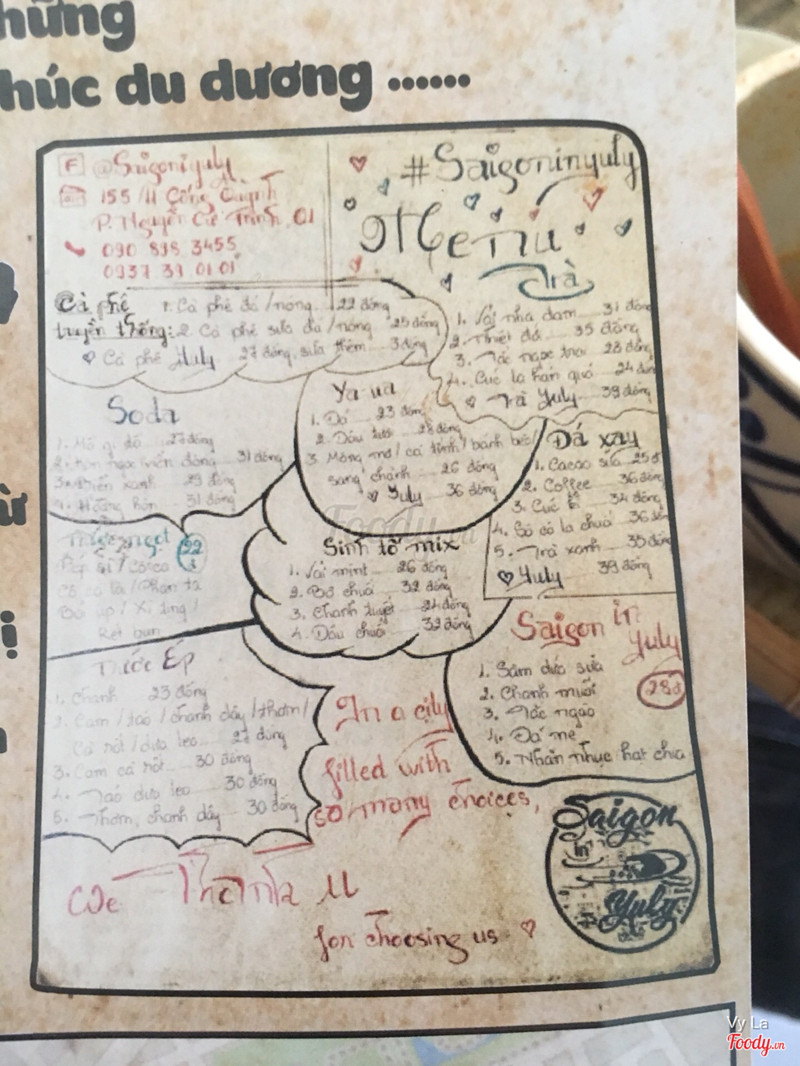 hững
húc du dương ......
F @Saigoniyuly
155/4 Cống Quỳnh
P. Nguyễn Cư Trinh, Q1
090 898 3455
0937 39 01 01
#Saigoninyuly
Menu
Cà phê
truyền thống:
1. Cà phê đá/nóng 22 đồng
2. Cà phê sữa đá/nóng 25 đồng
Cà phê Yuly 27 đồng, sữa thêm 3 đồng
Trà
1. Vải nha đam 31 đồng
2. Nhiệt đới 35 đồng
3. Tắc ngọc trai 28 đồng
4. Cúc la hán quả 24 đồng
Trà Yuly 39 đồng
Soda
27 đồng
31 đồng
3. Biển xanh 29 đồng
4. Hoàng hôn 31 đồng
Ya ua
1. Đá 23 đồng
2. Dâu tươi 28 đồng
3. Mộng mơ / cá tính / bánh bèo /
sang chảnh 26 đồng
Yuly 36 đồng
Đá xay
1. Cacao sữa 25 đ
2. Coffee 36 đồng
3. 34 đồng
4. Sô cô la chuối 36 đồng
5. Trà xanh 35 đồng
Yuly 39 đồng
Foody.vn
Nước ngọt
22
đ
Pép si / Côca
Cô ca lai / Phan ta
Bảy úp / Xí ting /
Rét bun
Sinh tố mix
1. Vải mint 26 đồng
2. Bơ chuối 32 đồng
3. Chanh tuyết 24 đồng
4. Dâu chuối 32 đồng
Saigon in
Yuly
28đ
1. Sâm dứa sữa
2. Chanh muối
3. Tắc ngào
4. Đá me
5. Nhãn nhục hạt chia
Nước Ép
1. Chanh 23 đồng
2. Cam / táo / chanh dây / thơm /
Cà rốt / dưa leo 27 đồng
3. Cam cà rốt 30 đồng
4. Táo dưa leo 30 đồng
5. Thơm, chanh dây 30 đồng
In a city
filled with
so many choices,
We Thank U
for choosing us
Saigon
in
Yuly
ừ
ị
Vy La
Foody.vn